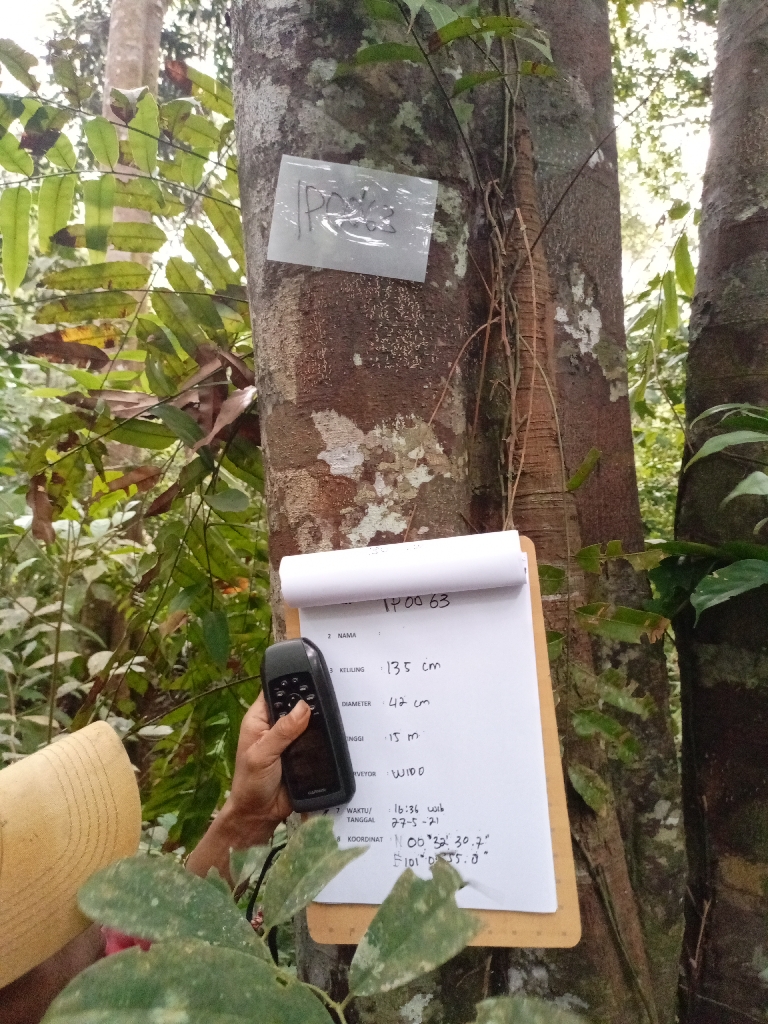 IP0063
IP0063
2 NAMA :
3 KELILING : 135 cm
DIAMETER : 42 cm
INGGI : 15 m
RVEYOR : WIDO
7 WAKTU/ : 16:36 WIB
TANGGAL 27-5-21
8 KOORDINAT : N 00° 32' 30.7"
E 101°
GARMIN